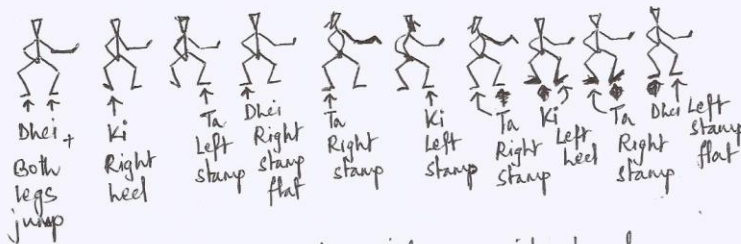 Dhei +
Both
legs
jump
Ki
Right
heel
Ta
Left
stamp
Dhei
Right
stamp
flat
Ta
Right
stamp
Ki
Left
stamp
Ta
Right
stamp
Ki
Left
heel
Ta
Right
stamp
Dhei
Left
stamp
flat